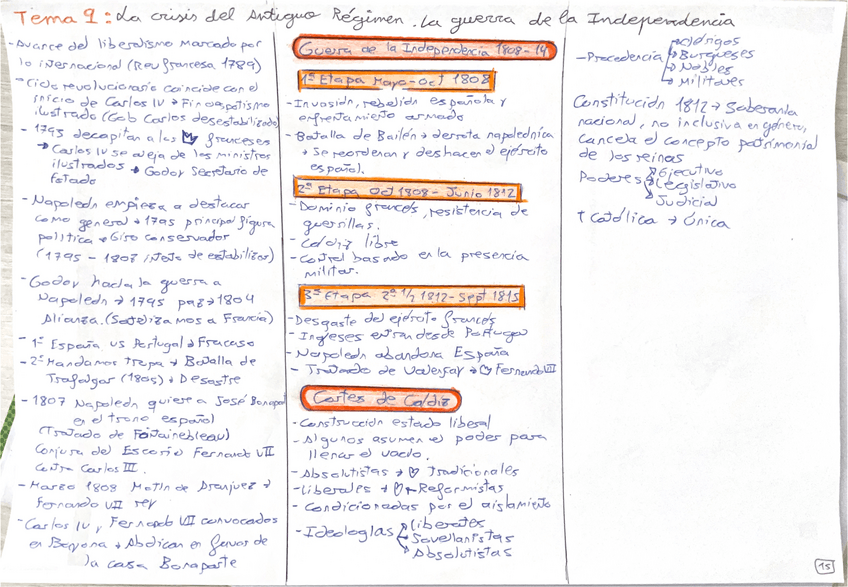 Tema 1: La crisis del Antiguo Régimen. La guerra de la Independencia
- Avance del liberalismo marcado por
lo internacional (Rev francesa 1789)
- Ciclo revolucionario coincide con el
inicio de Carlos IV → Fin despotismo
ilustrado (Gob Carlos desestabilizado)
- 1793 decapitan a los franceses
→ Carlos IV se aleja de los ministros
ilustrados → Godoy Secretario de
Estado
- Napoleón empieza a destacar
como general → 1795 principal figura
política → Giro conservador
(1795 - 1807 intento de estabilizar)
- Godoy hacía la guerra a
Napoleón → 1795 paz → 1804
Alianza. (Satelizamos a Francia)
- 1º España vs Portugal → Fracaso
- 2º Mandamos tropa → Batalla de
Trafalgar (1805) → Desastre
- 1807 Napoleón quiere a José Bonapar
en el trono español
(Tratado de Fontainebleau)
Conjura del Escorial Fernando VII
Contra Carlos III.
- Marzo 1808 Motín de Aranjuez →
Fernando VII rey
- Carlos IV y Fernando VII convocados
en Bayona → Abdican en favor de
la casa Bonaparte
Guerra de la Independencia 1808 - 14
1ª Etapa Mayo - Oct 1808
- Invasión, rebelión española y
enfrentamiento armado
- Batalla de Bailén → derrota napoleónica
→ Se reordenan y deshacen el ejército
español.
2ª Etapa Oct 1808 - Junio 1812
- Dominio francés, resistencia de
guerrillas.
- Cádiz libre
- Control basado en la presencia
militar.
3ª Etapa 2ª 1/2 1812 - Sept 1815
- Desgaste del ejército francés
- Ingleses entran desde Portugal
- Napoleón abandona España
- Tratado de Valençay → Fernando VII
Cortes de Cádiz
- Construcción estado liberal
- Algunos asumen el poder para
llenar el vacío.
- Absolutistas → ♡ Tradicionales
- Liberales → ♡ Reformistas
- Condicionadas por el aislamiento
- Ideologías → Liberales
→ Jovellanistas
→ Absolutistas
- Procedencia → Clérigos
→ Burgueses
→ Nobles
→ Militares
Constitución 1812 → Soberanía
nacional, no inclusiva en género,
cancela el concepto patrimonial
de los reinos
Poderes → Ejecutivo
→ Legislativo
→ Judicial
† Católica → Única
15